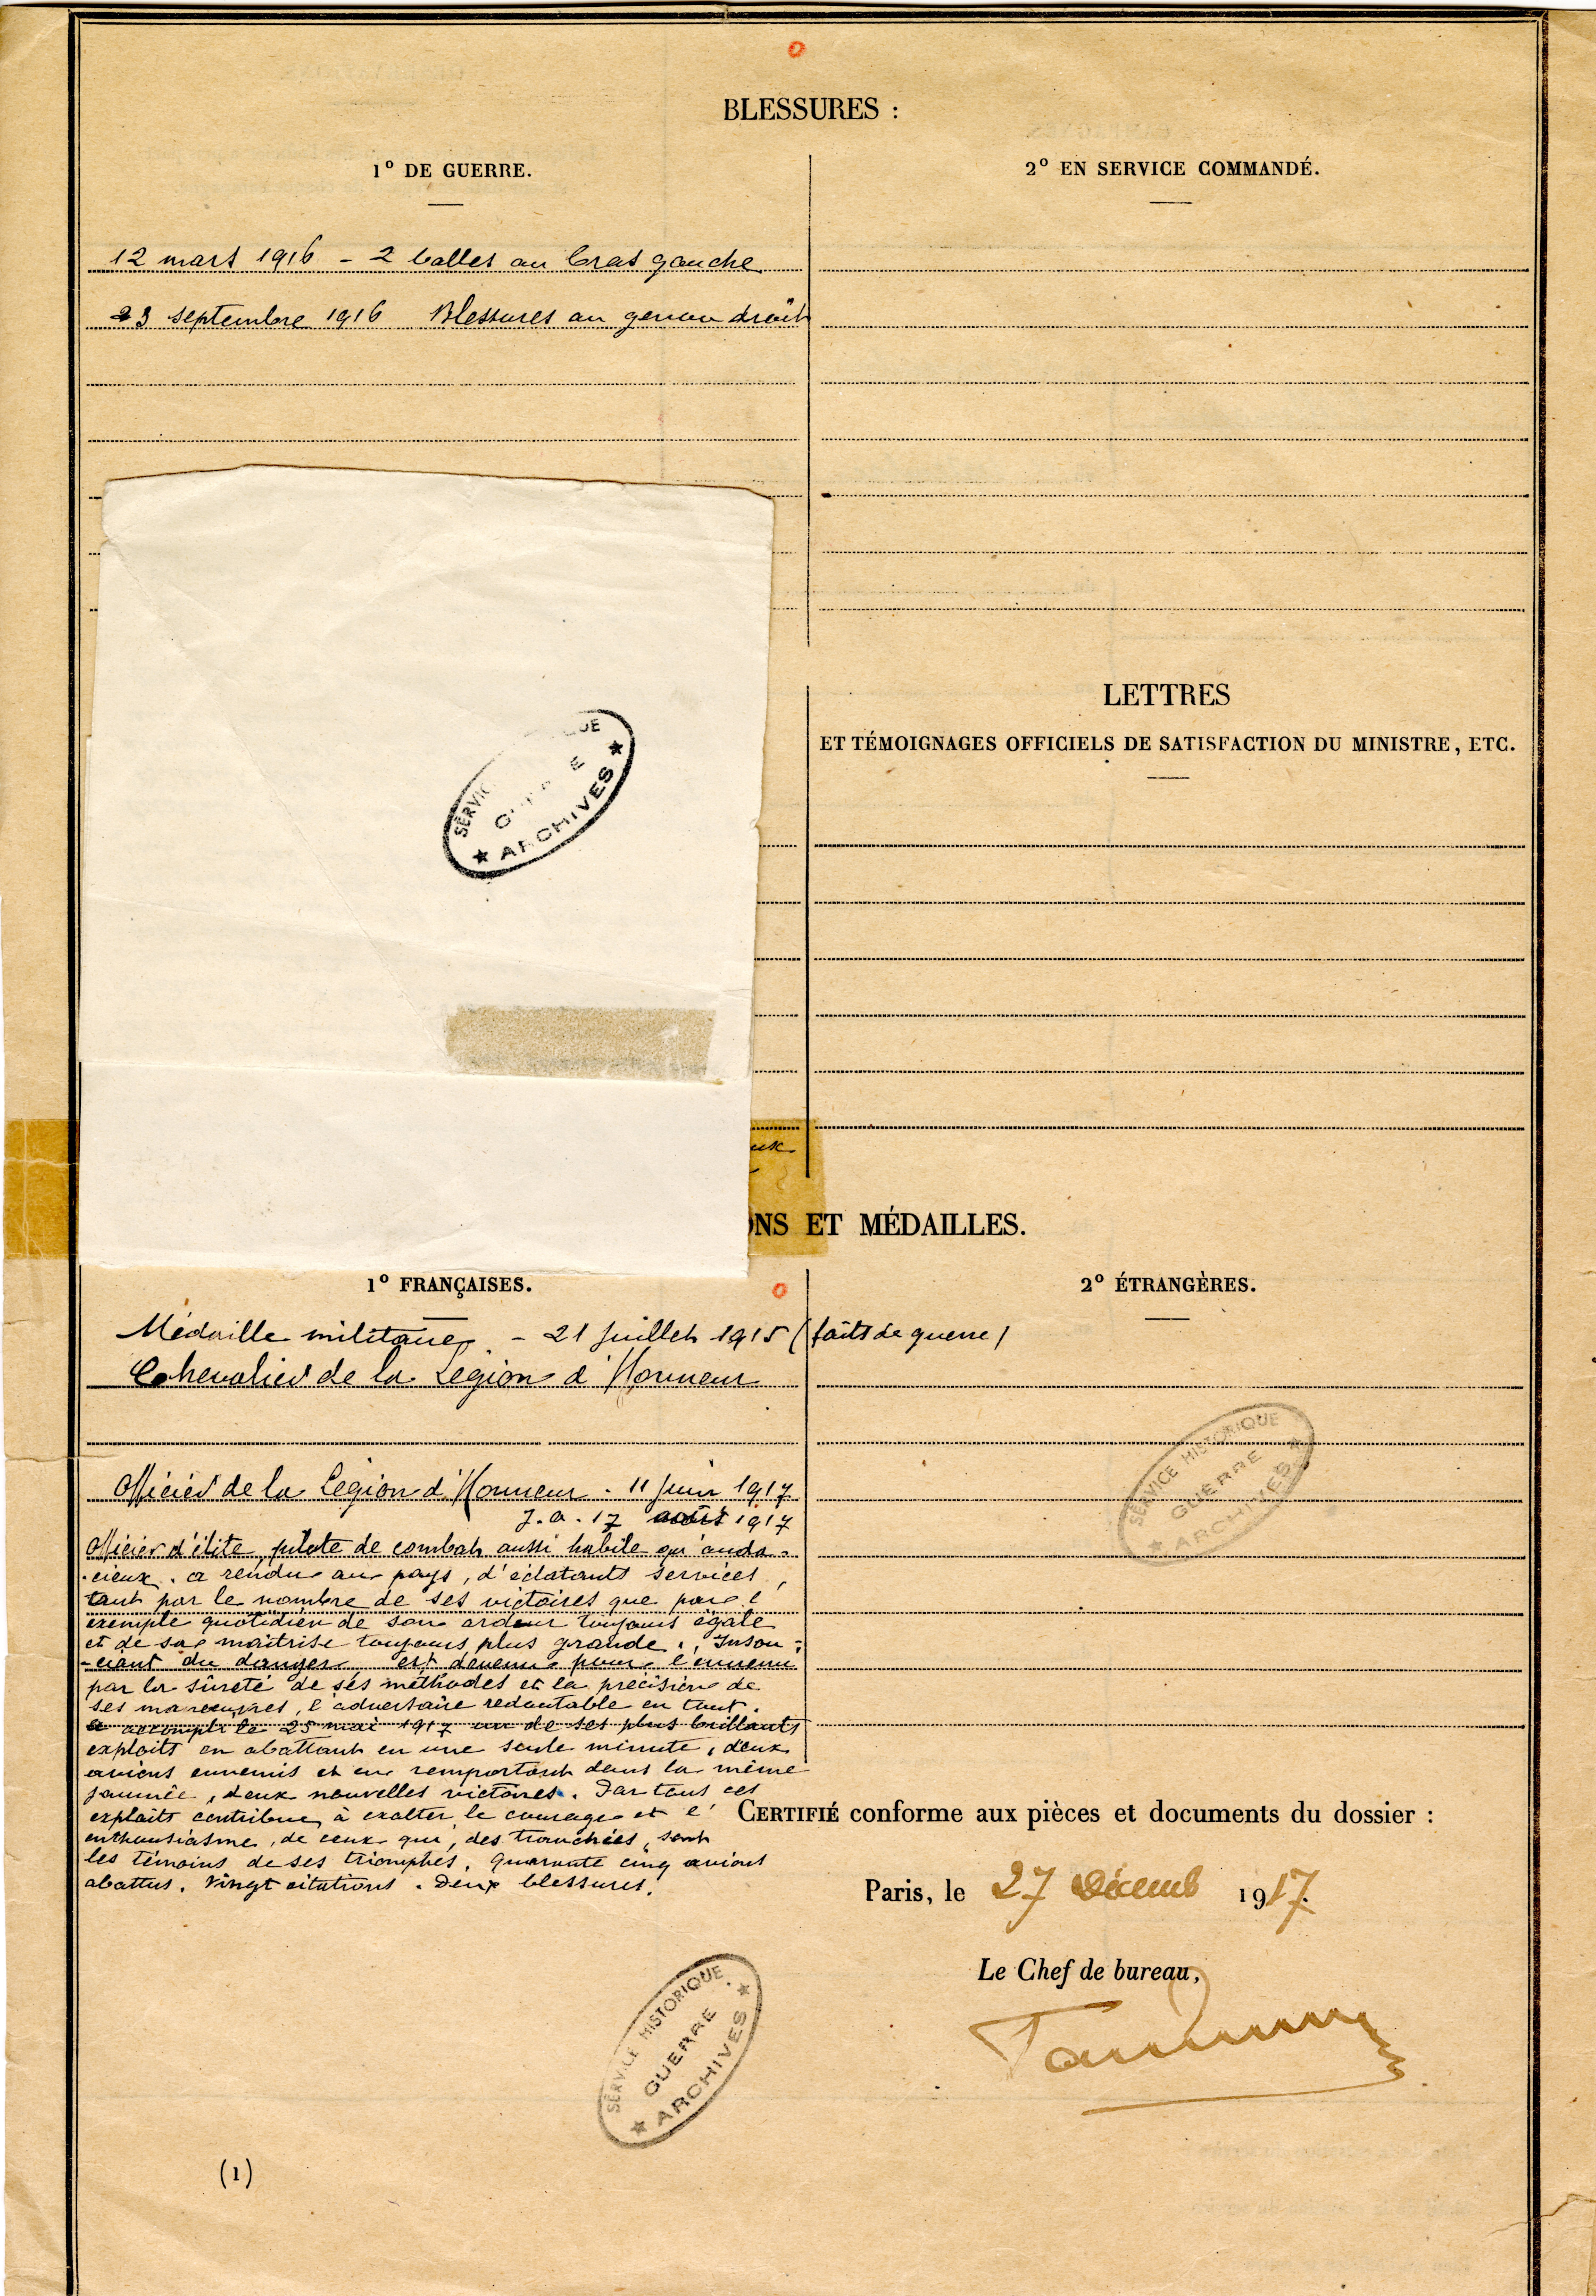 BLESSURES :
1° DE GUERRE.
2° EN SERVICE COMMANDÉ.
12 mars 1916 - 2 balles au bras gauche
23 septembre 1916 Blessures au genou droit
SERVIC UE
G E
★ ARCHIVES ★
LETTRES
ET TÉMOIGNAGES OFFICIELS DE SATISFACTION DU MINISTRE, ETC.
NS ET MÉDAILLES.
1° FRANÇAISES.
2° ÉTRANGÈRES.
Médaille militaire - 21 Juillet 1915 (faits de guerre)
Chevalier de la Légion d'Honneur
SERVICE HISTORIQUE
GUERRE
★ ARCHIVES ★
Officier de la Légion d'Honneur - 11 Juin 1917
J.O. 17 août 1917
Officier d'élite, pilote de combat aussi habile qu'auda-
-cieux. a rendu au pays, d'éclatants services,
tant par le nombre de ses victoires que par l'
exemple quotidien de son ardeur toujours égale
et de sa maîtrise toujours plus grande. Insou-
-ciant du danger est devenu pour l'ennemi
par la sûreté de ses méthodes et la précision de
ses manoeuvres, l'adversaire redoutable en tout.
a accompli le 25 mai 1917 un de ses plus brillants
exploits en abattant en une seule minute, deux
avions ennemis et en remportant dans la même
journée, deux nouvelles victoires. Par tous ces
exploits contribue à exalter le courage et l'
enthousiasme, de ceux qui, des tranchées, sont
les témoins de ses triomphes. Quarante cinq avions
abattus. Vingt citations. Deux blessures.
CERTIFIÉ conforme aux pièces et documents du dossier :
Paris, le 27 Décemb 1917.
Le Chef de bureau,
SERVICE HISTORIQUE
GUERRE
★ ARCHIVES ★
(1)